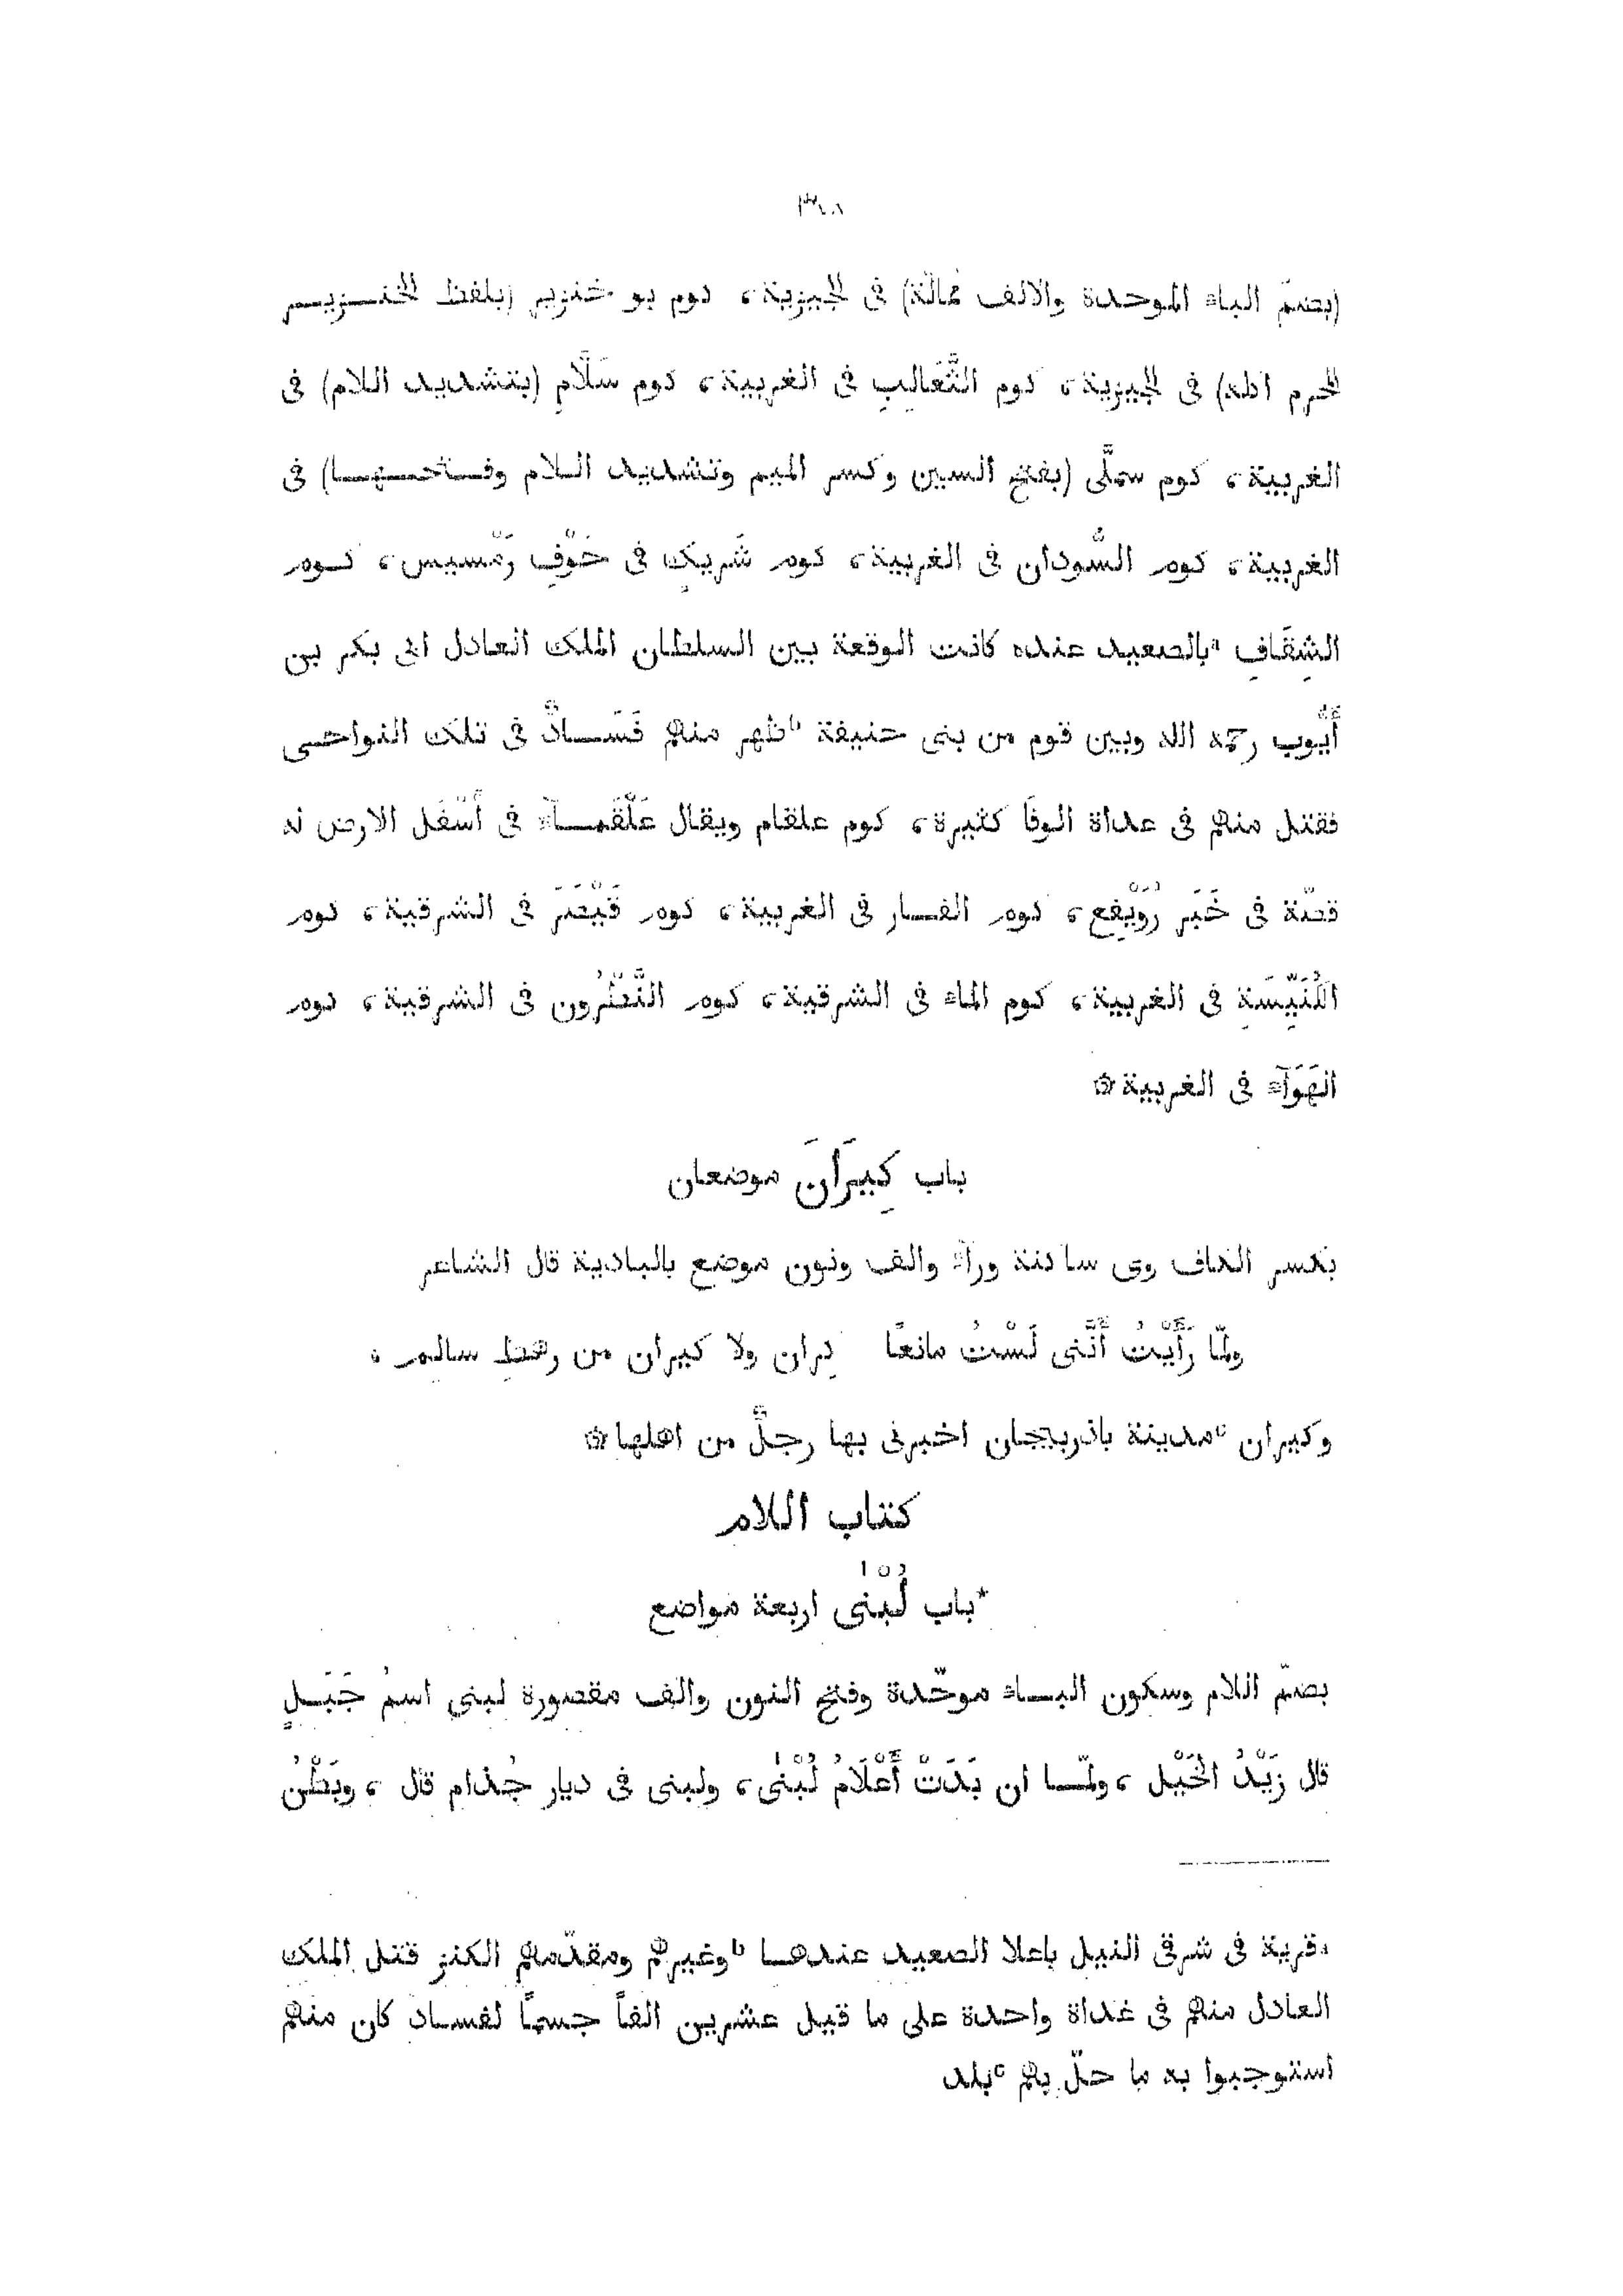 ٣٦٨
(بضمّ الباء الموحدة والالف مُمالَة) فى الجيزية، كوم بو خنزير (بلفظ الخنزير
المحرم اكله) فى الجيزية، كوم الثَّعَالِبِ فى الغربية، كوم سَلَّامٍ (بتشديد اللام) فى
الغربية، كوم سملَّى (بفتح السين وكسر الميم وتشديد اللام وفتحها) فى
الغربية، كوم السُّودان فى الغربية، كوم شَرِيكٍ فى حَوْفِ رَمْسيس، كوم
الشِقَافِ ᵃبالصعيد عنده كانت الوقعة بين السلطان الملك العادل ابى بكر بن
أَيُّوب رحمه الله وبين قوم من بنى حنيفة ᵇظهر منهم فَسَادٌ فى تلك النواحى
فقتل منهم فى غداة الوفًا كثيرة، كوم علقام ويقال عَلْقَمَآء فى أَسْفَل الارض له
قصّة فى خَبَر رُوَيْفِع، كوم الفار فى الغربية، كوم قَيْصَرَ فى الشرقية، كوم
الكُنَيِّسَةِ فى الغربية، كوم الماء فى الشرقية، كوم فى الشرقية، كوم
الهَوَآء فى الغربية ۞
باب كِيرَانَ موضعان
بكسر الكاف وى ساكنة ورآء والف ونون موضع بالبادية قال الشاعر
ولمّا رَأَيْتُ أَنَّنى لَسْتُ مانعًا كِران ولا كيران من رهط سالم،
وكيران ᶜمدينة باذربيجان اخبرنى بها رجلٌ من اهلها ۞
كتاب اللام
*باب لُبْنٰى اربعة مواضع
بضمّ اللام وسكون الباء موحّدة وفتح النون والف مقصورة لبنى اسمُ جَبَلٍ
قال زَيْدُ الخَيْل، ولمّا ان بَدَتْ أَعْلَامُ لُبْنٰى، ولبنى فى ديار جُذام قال، وبَطْنُ
ᵃقرية فى شرقى النيل باعلا الصعيد عندها ᵇوغيرهم ومقدّمهم الكنز قتل الملك
العادل منهم فى غداة واحدة على ما قيل عشرين الفاً جسمًا لفساد كان منهم
استوجبوا به ما حلّ بهم ᶜبلد